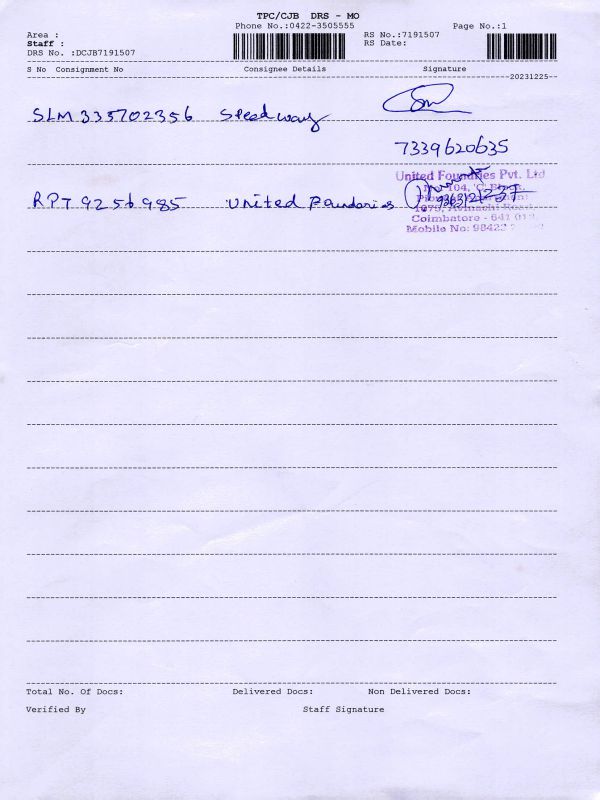 TPC/CJB DRS - MO
Phone No.:0422-3505555 Page No.:1
Area : RS No.:7191507
Staff : RS Date:
DRS No. :DCJB7191507
S No Consignment No Consignee Details Signature
20231225
SLM 335702356 Speedway
7339620635
United Foundries Pvt. Ltd
RPT 9256985 United Foundaries
104, 'C' Block,
1075, Avinachi Road
Coimbatore - 641 018.
Mobile No: 98422
Total No. Of Docs: Delivered Docs: Non Delivered Docs:
Verified By Staff Signature